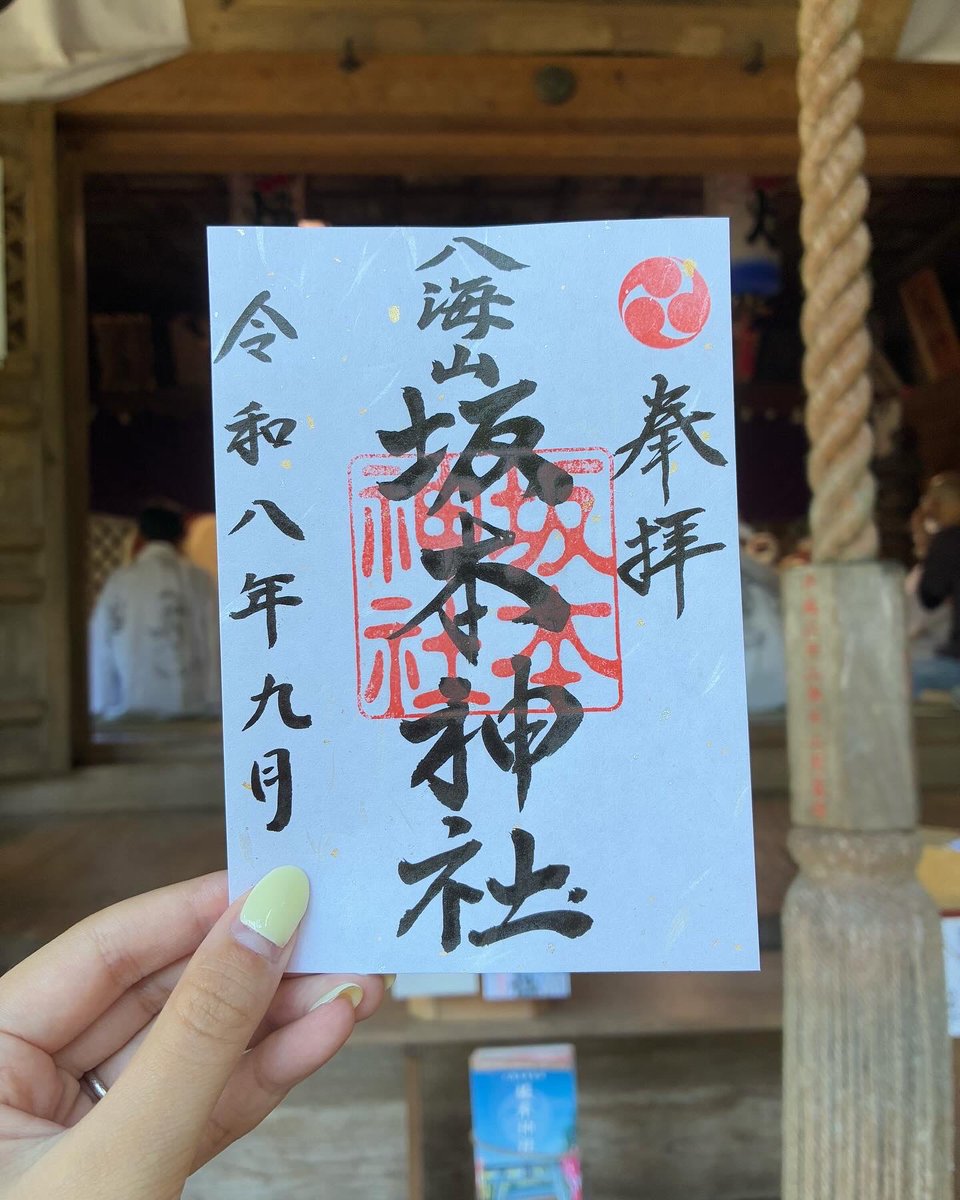 奉拝
八海山
坂本神社
坂本
神社
令和八年九月